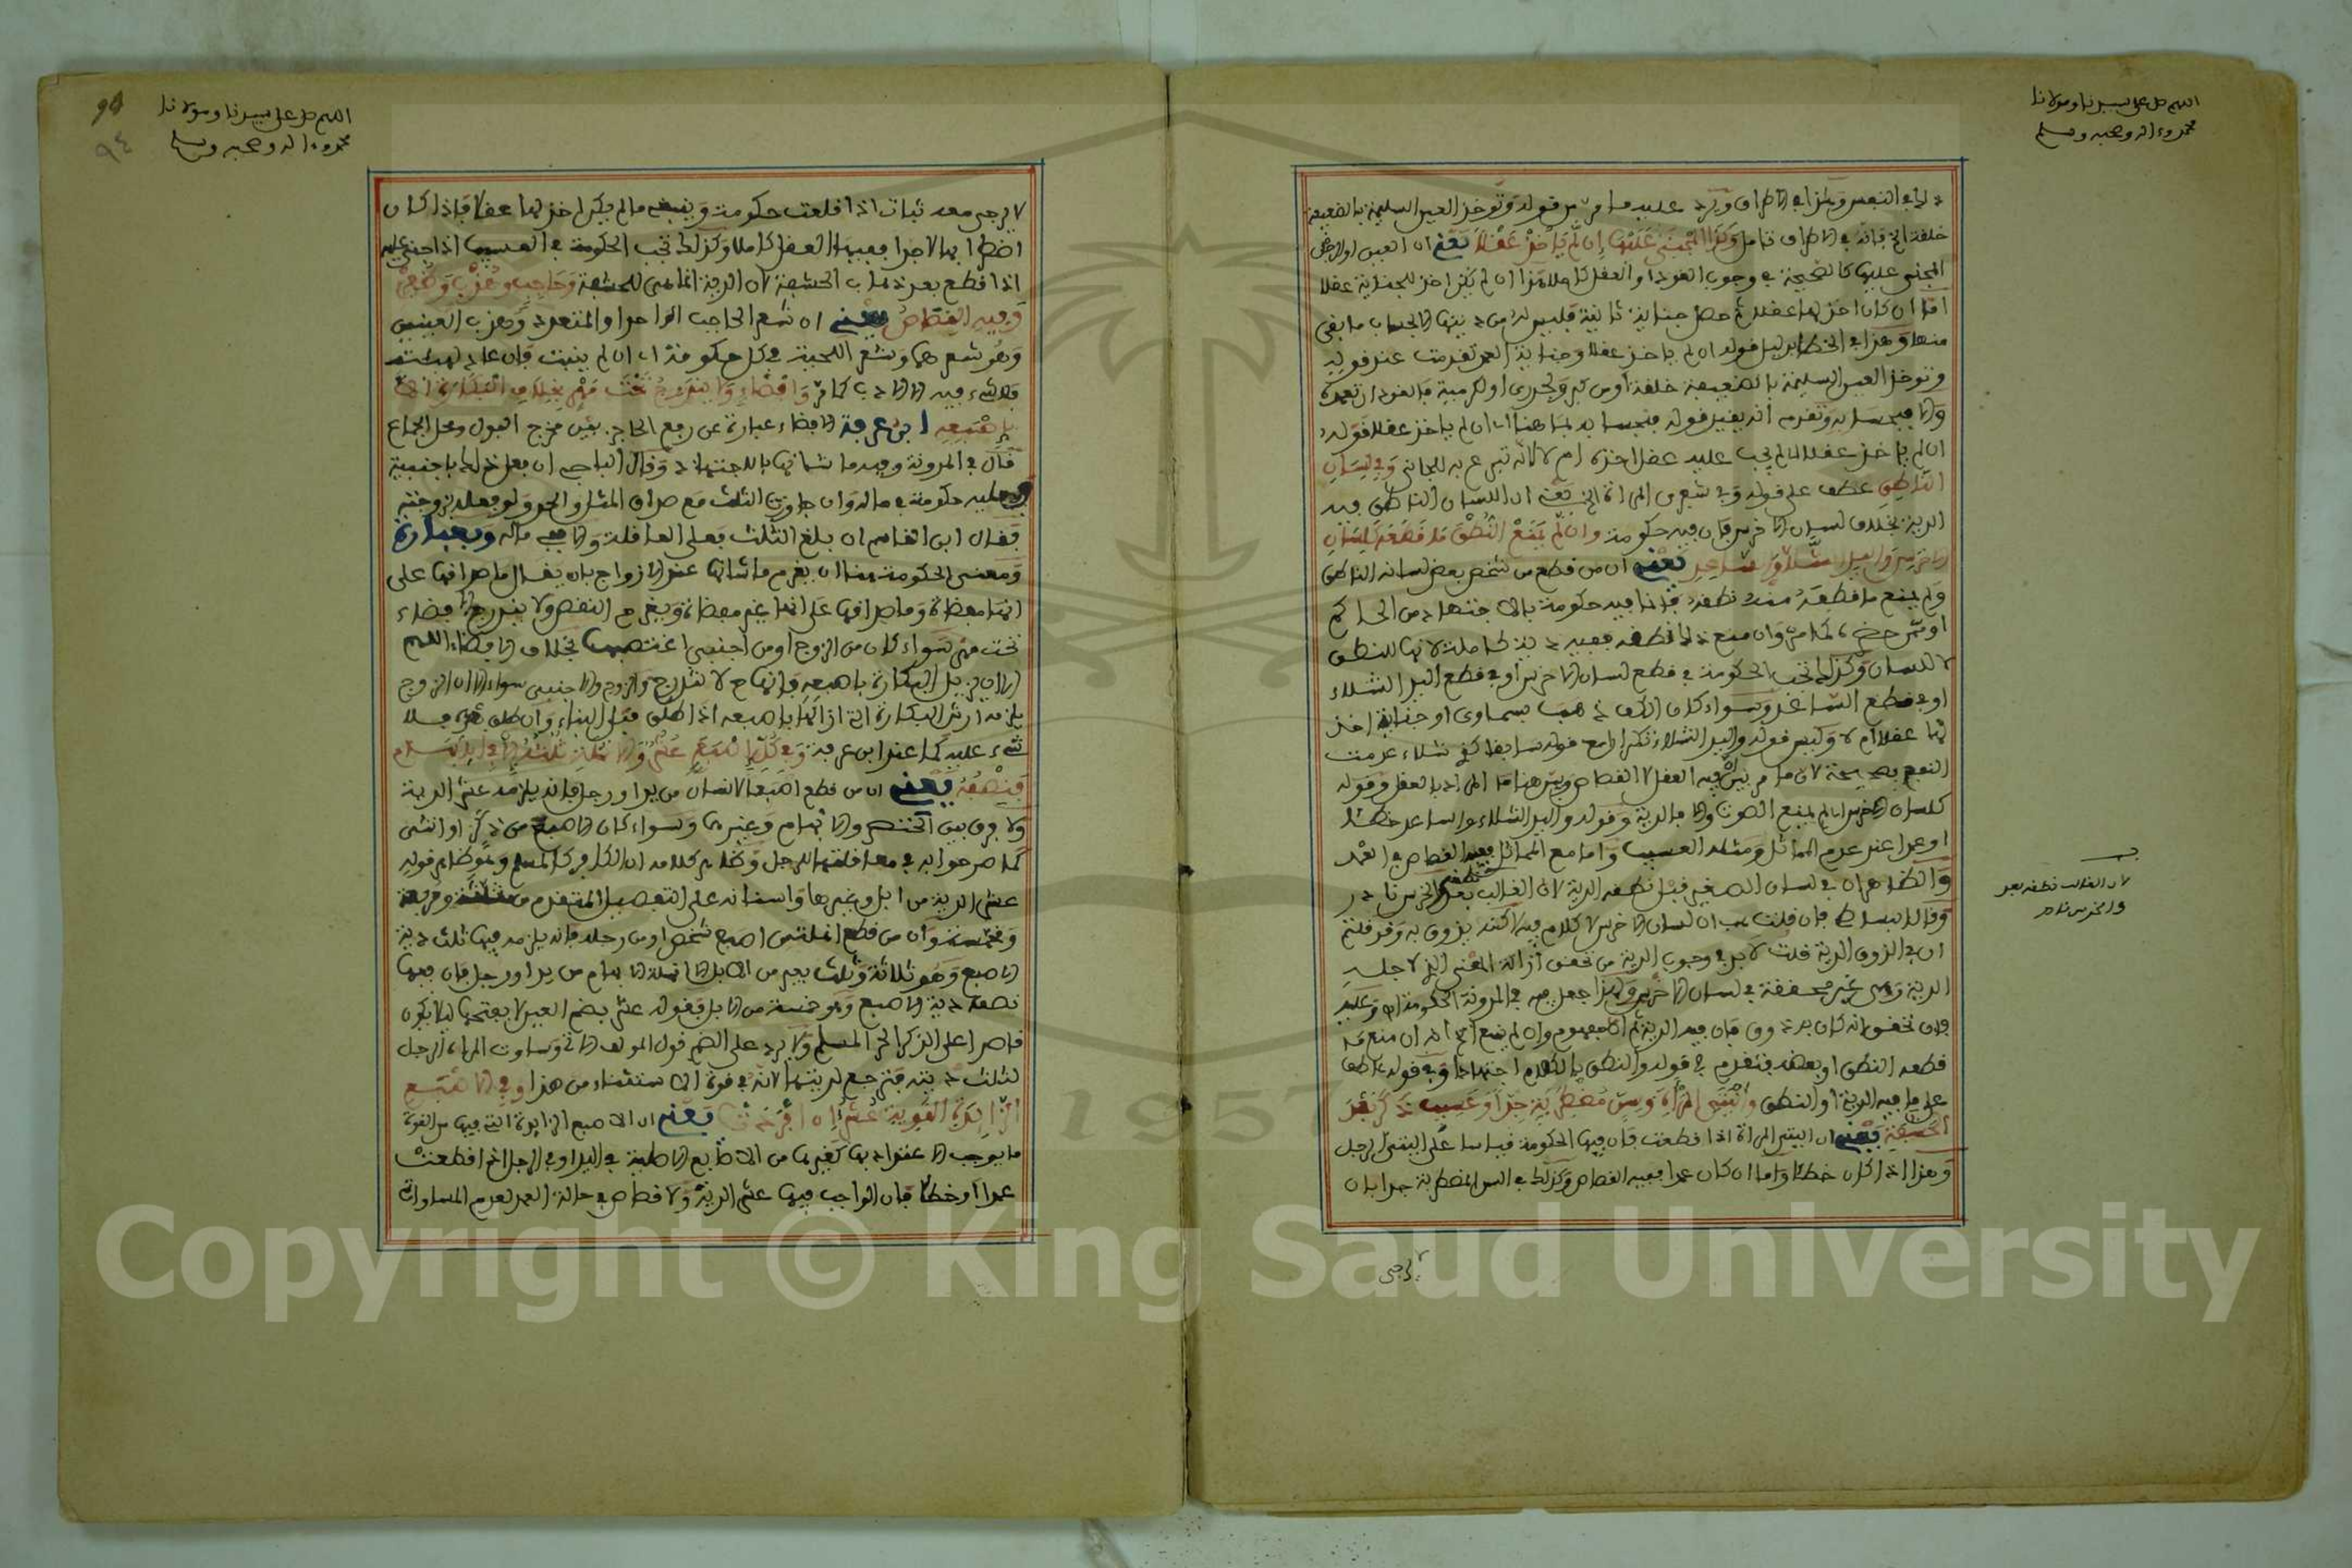 اللهم صل على سيدنا ومولانا
محمد وءاله وصحبه وسلم
ذلك في النفس وهذا في الاطراف ويرد عليه ما مر من قوله وتوخذ العين السليمة بالضعيفة
خلقة الخ فانه في الاطراف تامل وكذا المجني عليها ان لم ياخذ عقلا يعني ان العين او الرجل
المجني عليها كالصحيحة في وجوب القود او العقل كاملا هذا ان لم يكن اخذ للجناية عقلا
اما ان كان اخذ لها عقلا ثم حصل جناية ثانية فليس له من ديتها الا بحساب ما بقي
منها وهذا في الخطا بدليل قوله ان لم ياخذ عقلا وجناية العمد تقدمت عند قوله
وتوخذ العين السليمة بالضعيفة خلقة او من كبر ولجدري او لكرمية فالقود ان تعمده
والا فبحسابه وتقدم انه يقيد قوله فبحسابه بما هنا اي ان لم ياخذ عقلا فقوله
ان لم ياخذ عقلا اي لم يجب عليه عقل اخذه ام لا لانه تبرع به للجاني وفي لسان
الناطق عطف على قوله وفي شعري المراة الخ يعني ان اللسان الناطق فيه
الدية بخلاف لسان الاخرس فان فيه حكومة وان لم يمنع النطق ما قطعه كلسان
الاخرس واليد الشلاء والساعد يعني ان من قطع من شخص بعض لسانه الناطق
ولم يمنع ما قطعه منه نطقه فانما فيه حكومة بالاجتهاد من الحاكم
كما مر وان منع ذلك نطقه ففيه دية كاملة لانها للنطق
لا للسان وكذلك تجب الحكومة في قطع لسان الاخرس او في قطع اليد الشلاء
او في قطع الساعد وسواء كان الكف ذهب بسماوي او جناية اخذ
لها عقلا ام لا وليس قوله واليد الشلاء تكرارا مع قوله سابقا كفي شلاء عدمت
النفع بصحيحة لان ما مر بين فيه العقل لا القصاص وبين هنا ما المراد بالعقل وقوله
كلسان الاخرس اي لم يمنع الصوت والا فالدية وقوله واليد الشلاء والساعد خطئا
او عمدا عند عدم المماثل ومثله العسيب واما مع المماثل ففيه القصاص في العمد
والظاهر ان في لسان الصغير قبل نطقه الدية لان الغالب نطقه بعد والخرس نادر
وقال البساطي فان قلت هب ان لسان الاخرس لا كلام فيه لكنه يذوق به وقد قلتم
ان في الذوق الدية قلت لا بد في وجوب الدية من تحقق ازالة المعنى الذي لاجله
الدية وهي غير محققة في لسان الاخرس ولذا جعل فيه في المدونة الحكومة اه وعليه
فان تحقق انه كان به ذوق فان فيه الدية ثم ان مفهوم وان لم يمنع الخ انه ان منع ما
قطعه النطق او بعضه فتقدم في قوله والنطق بالكلام اجتهادا وفي قوله باطق
على ما فيه الدية او النطق واليتي المراة وسن مضطربة جدا وعسيب ذكر بعد
الحشفة يعني ان اليتي المراة اذا قطعت فان فيها الحكومة قياسا على اليتي الرجل
وهذا اذا كان خطئا واما ان كان عمدا ففيه القصاص وكذلك في السن المضطربة جدا بان
لان الغالب نطقه بعد
والخرس نادر
لا يرجى
اللهم صل على سيدنا ومولانا
محمد وءاله وصحبه وسلم
٩٤
لا يرجى معه ثبات اذا قلعت حكومة وينبغي ما لم يكن اخذ لها عقلا فاذا كان
اضطرابها لا جدا ففيها العقل كاملا وكذلك تجب الحكومة في العسيب اذا جني عليه
اذا قطع بعد ذهاب الحشفة لان الدية انما هي للحشفة وحاجب وهدب وظفر
وفيه القصاص يعني ان شعر الحاجب الواحد او المتعدد وهدب العينين
وهو شعرهما وشعر اللحية في كل حكومة اي ان لم ينبت فان عاد لهيئته
فلا شيء فيه الا الادب كما مر وافضاء ولا يندرج تحت مهر بخلاف البكارة الا
باصبعه ابن عرفة الافضاء عبارة عن رفع الحاجز بين مخرج البول ومحل الجماع
قال في المدونة وفيه ما شانها بالاجتهاد وقال الباجي ان فعل ذلك باجنبية
فعليه حكومة في ماله وان جاوزت الثلث مع صداق المثل والحد ولو فعله بزوجته
فقال ابن القاسم ان بلغ الثلث فعلى العاقلة والا ففي ماله وبعبارة
ومعنى الحكومة هنا ان يغرم ما شانها عند الازواج بان يقال ما صداقها على
انها مفضاة وما صداقها على انها غير مفضاة ويغرم النقص ولا يندرج الافضاء
تحت مهر سواء كان من الزوج او من اجنبي اغتصبها بخلاف الافضاء اللهم
الا ان يزيل البكارة باصبعه فانها لا تندرج والزوج والاجنبي سواء الا ان الزوج
يلزمه ارش البكارة التي ازالها باصبعه اذا طلق قبل البناء وان طلق بعده فلا
شيء عليه كما عند ابن عرفة وفي كل اصبع عشر والانملة ثلثه الا في الابهام
فنصفه يعني ان من قطع اصبعا لانسان من يد او رجل فانه يلزمه عشر الدية
ولا فرق بين الخنصر والابهام وغيرها وسواء كان الاصبع من ذكر او انثى
كما صرحوا به في معاقلتها للرجل وظاهر كلامه ان الكافر كالمسلم وهو ظاهر قوله
عشر الدية من ابل وغيرها واسنانه على التفصيل المتقدم من مثلثة ومربعة
ومخمسة وان من قطع انملتي اصبع شخص او من رجله فانه يلزمه فيها ثلث دية
الاصبع وهو ثلاثة وثلث بعير من الابل الا انملة الابهام من يد او رجل فان فيها
نصف دية الاصبع وهو خمسة من الابل فقوله عشر بضم العين لا بفتحها ليلا يكون
قاصرا على الذكر الحر المسلم ولا يرد على الضم قول المولف الاتي وساوت المراة الرجل
لثلث ديته فترجع لديتها لانه في قوة الاستثناء من هذا وفي الاصبع
الزايدة القوية عشر ان افردت يعني ان الاصبع الزايدة التي فيها من القوة
ما يوجب الاعتداد بها كغيرها من الاصابع الاصلية في اليد او في الرجل اذا قطعت
عمدا او خطئا فان الواجب فيها عشر الدية ولا قصاص في حالة العمد لعدم المساواة
Copyright © King Saud University
1957